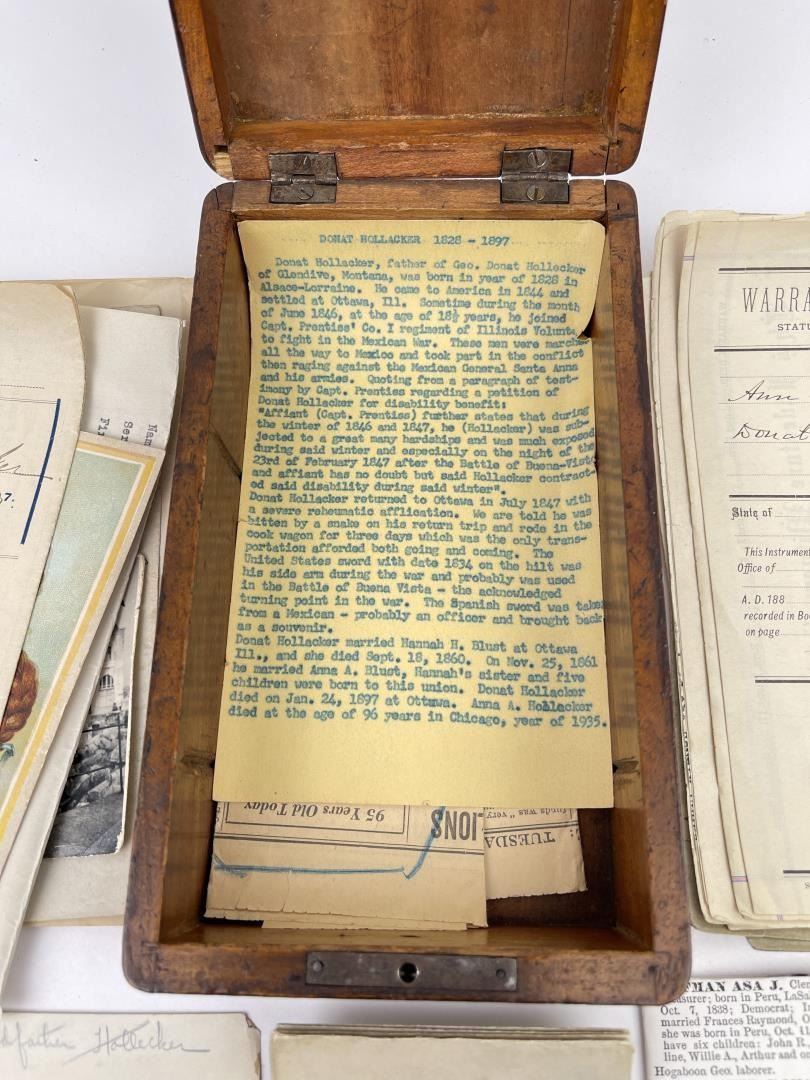 DONAT HOLLACKER 1828 - 1897
Donat Hollacker, father of Geo. Donat Hollecker
of Glendive, Montana, was born in year of 1828 in
Alsace-Lorraine. He came to America in 1844 and
settled at Ottawa, Ill. Sometime during the month
of June 1846, at the age of 18½ years, he joined
Capt. Prentiss' Co. I regiment of Illinois Volunt
to fight in the Mexican War. These men were marche
all the way to Mexico and took part in the conflict
then raging against the Mexican General Santa Anna
and his armies. Quoting from a paragraph of test-
imony by Capt. Prentiss regarding a petition of
Donat Hollacker for disability benefit:
"Affiant (Capt. Prentiss) further states that during
the winter of 1846 and 1847, he (Hollecker) was sub-
jected to a great many hardships and was much exposed
during said winter and especially on the night of the
23rd of February 1847 after the Battle of Buena-Vista
and affiant has no doubt but said Hollacker contract-
ed said disability during said winter".
Donat Hollacker returned to Ottawa in July 1847 with
a severe reheumatic affliction. We are told he was
bitten by a snake on his return trip and rode in the
cook wagon for three days which was the only trans-
portation afforded both going and coming. The
United States sword with date 1834 on the hilt was
his side arm during the war and probably was used
in the Battle of Buena Vista - the acknowledged
turning point in the war. The Spanish sword was taken
from a Mexican - probably an officer and brought back
as a souvenir.
Donat Hollacker married Hannah H. Blust at Ottawa
Ill., and she died Sept. 18, 1860. On Nov. 25, 1861
he married Anna A. Blust, Hannah's sister and five
children were born to this union. Donat Hollacker
died on Jan. 24, 1897 at Ottawa. Anna A. Hollacker
died at the age of 96 years in Chicago, year of 1935.
95 Years Old Today
IONS
funds was "very
TUESDA
Nam
Ser
Fi
7.
WARRA
STATU
Ann
Donat
State of
This Instrument
Office of
A. D. 188
recorded in Boo
on page
dfather Hollecker
FMAN ASA J. Cler
asurer; born in Peru, LaSal
Oct. 7, 1838; Democrat; In
married Frances Raymond, O
she was born in Peru, Oct. 11
have six children: John R.,
line, Willie A., Arthur and on
Hogaboon Geo. laborer.